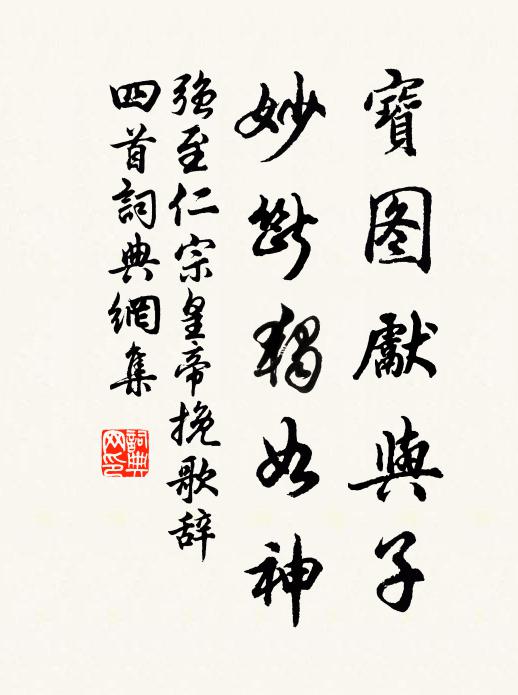 寶图獻與子
妙斷獨如神
強至仁宗皇帝挽歌辞
四首詞典網集
詞典网印